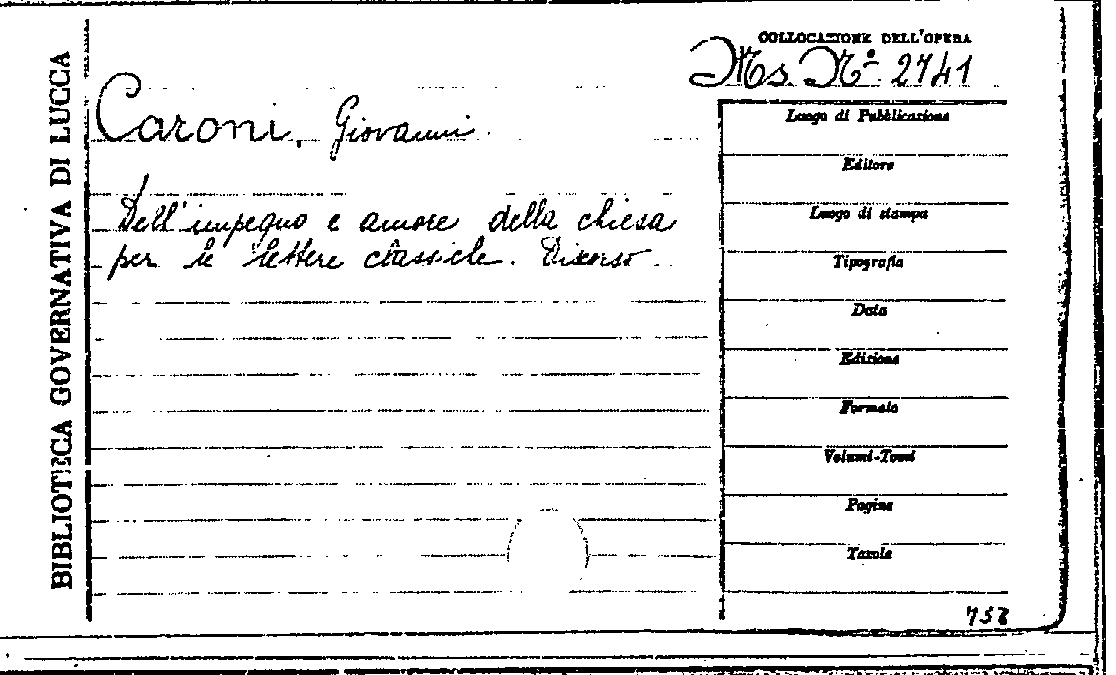 BIBLIOTECA GOVERNATIVA DI LUCCA
COLLOCAZIONE DELL'OPERA
Ms. N.° 2741
Caroni, Giovanni
Dell'impegno e amore della chiesa
per le lettere classiche. Discorso
Luogo di Pubblicazione
Editore
Luogo di stampa
Tipografia
Data
Edizione
Formato
Volumi-Tomi
Pagine
Tavole
758